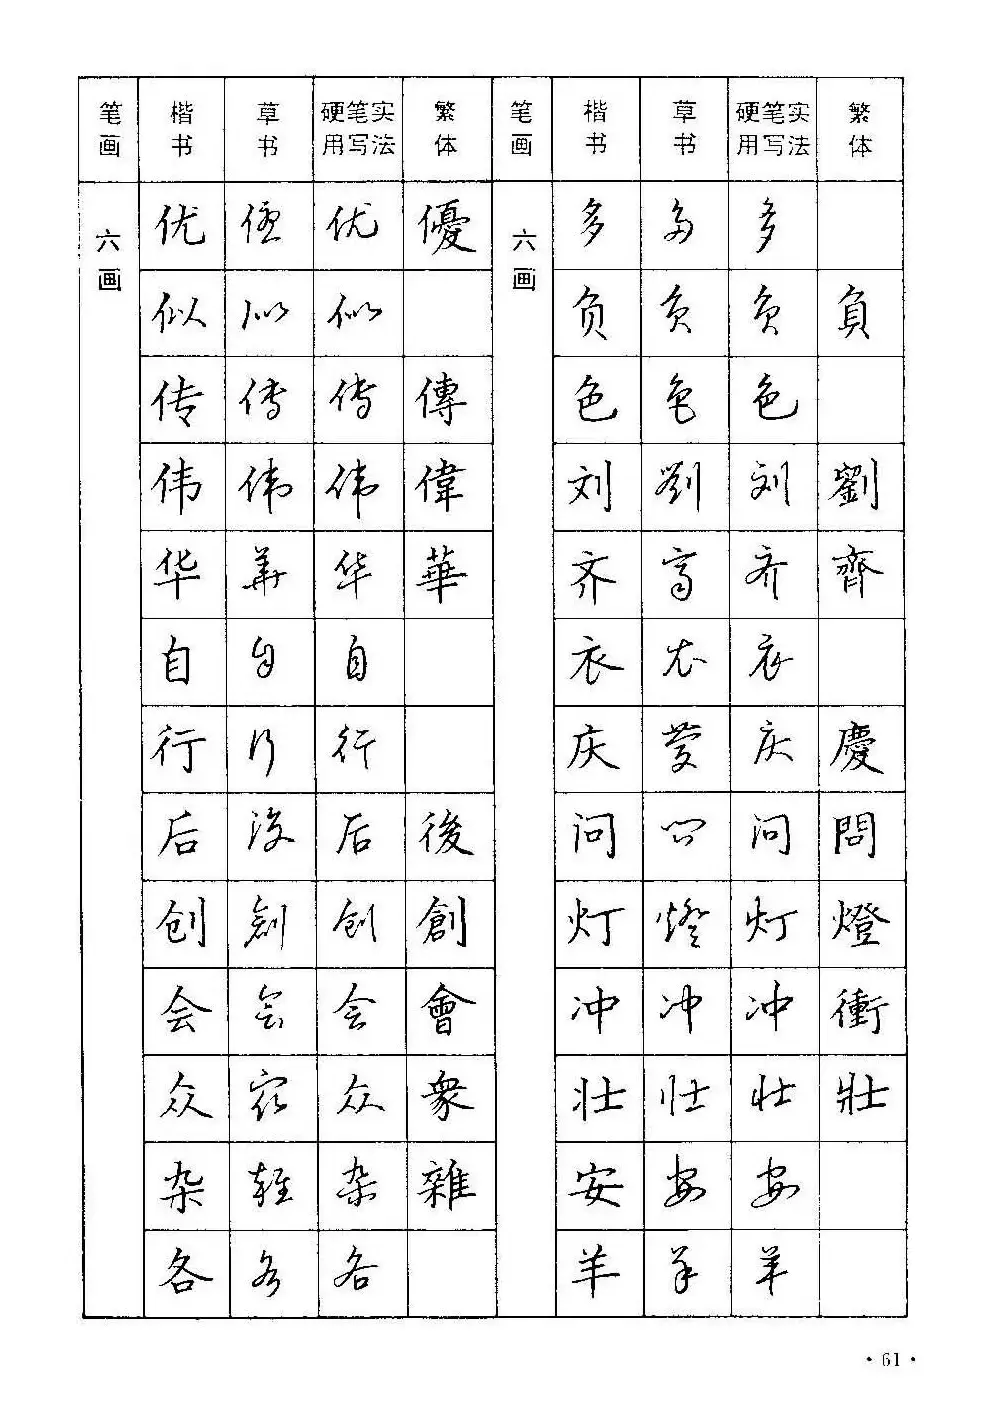 笔画 楷书 草书 硬笔实用写法 繁体 笔画 楷书 草书 硬笔实用写法 繁体
六画 优 优 优 優 六画 多 多 多
似 似 似 负 负 负 負
传 传 传 傳 色 色 色
伟 伟 伟 偉 刘 劉 刘 劉
华 華 华 華 齐 齐 齐 齊
自 自 自 衣 衣 衣
行 行 行 庆 慶 庆 慶
后 後 后 後 问 问 问 問
创 創 创 創 灯 燈 灯 燈
会 会 会 會 冲 冲 冲 衝
众 众 众 衆 壮 壮 壮 壯
杂 雜 杂 雜 安 安 安
各 各 各 羊 羊 羊
·61·